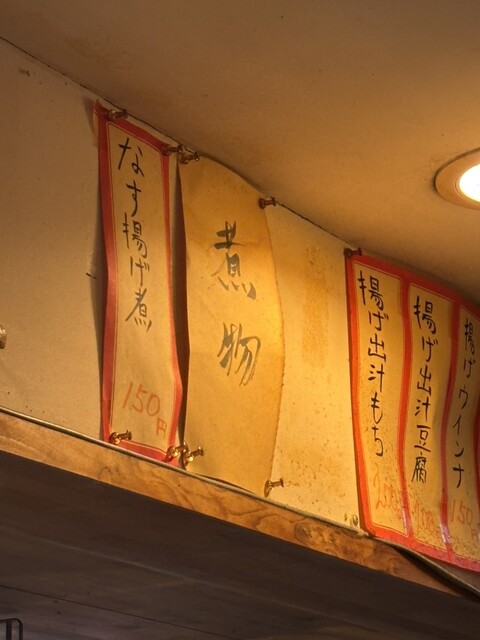 なす揚げ煮
150円
煮物
揚げ出汁もち
揚げ出汁豆腐
揚げウインナ
150